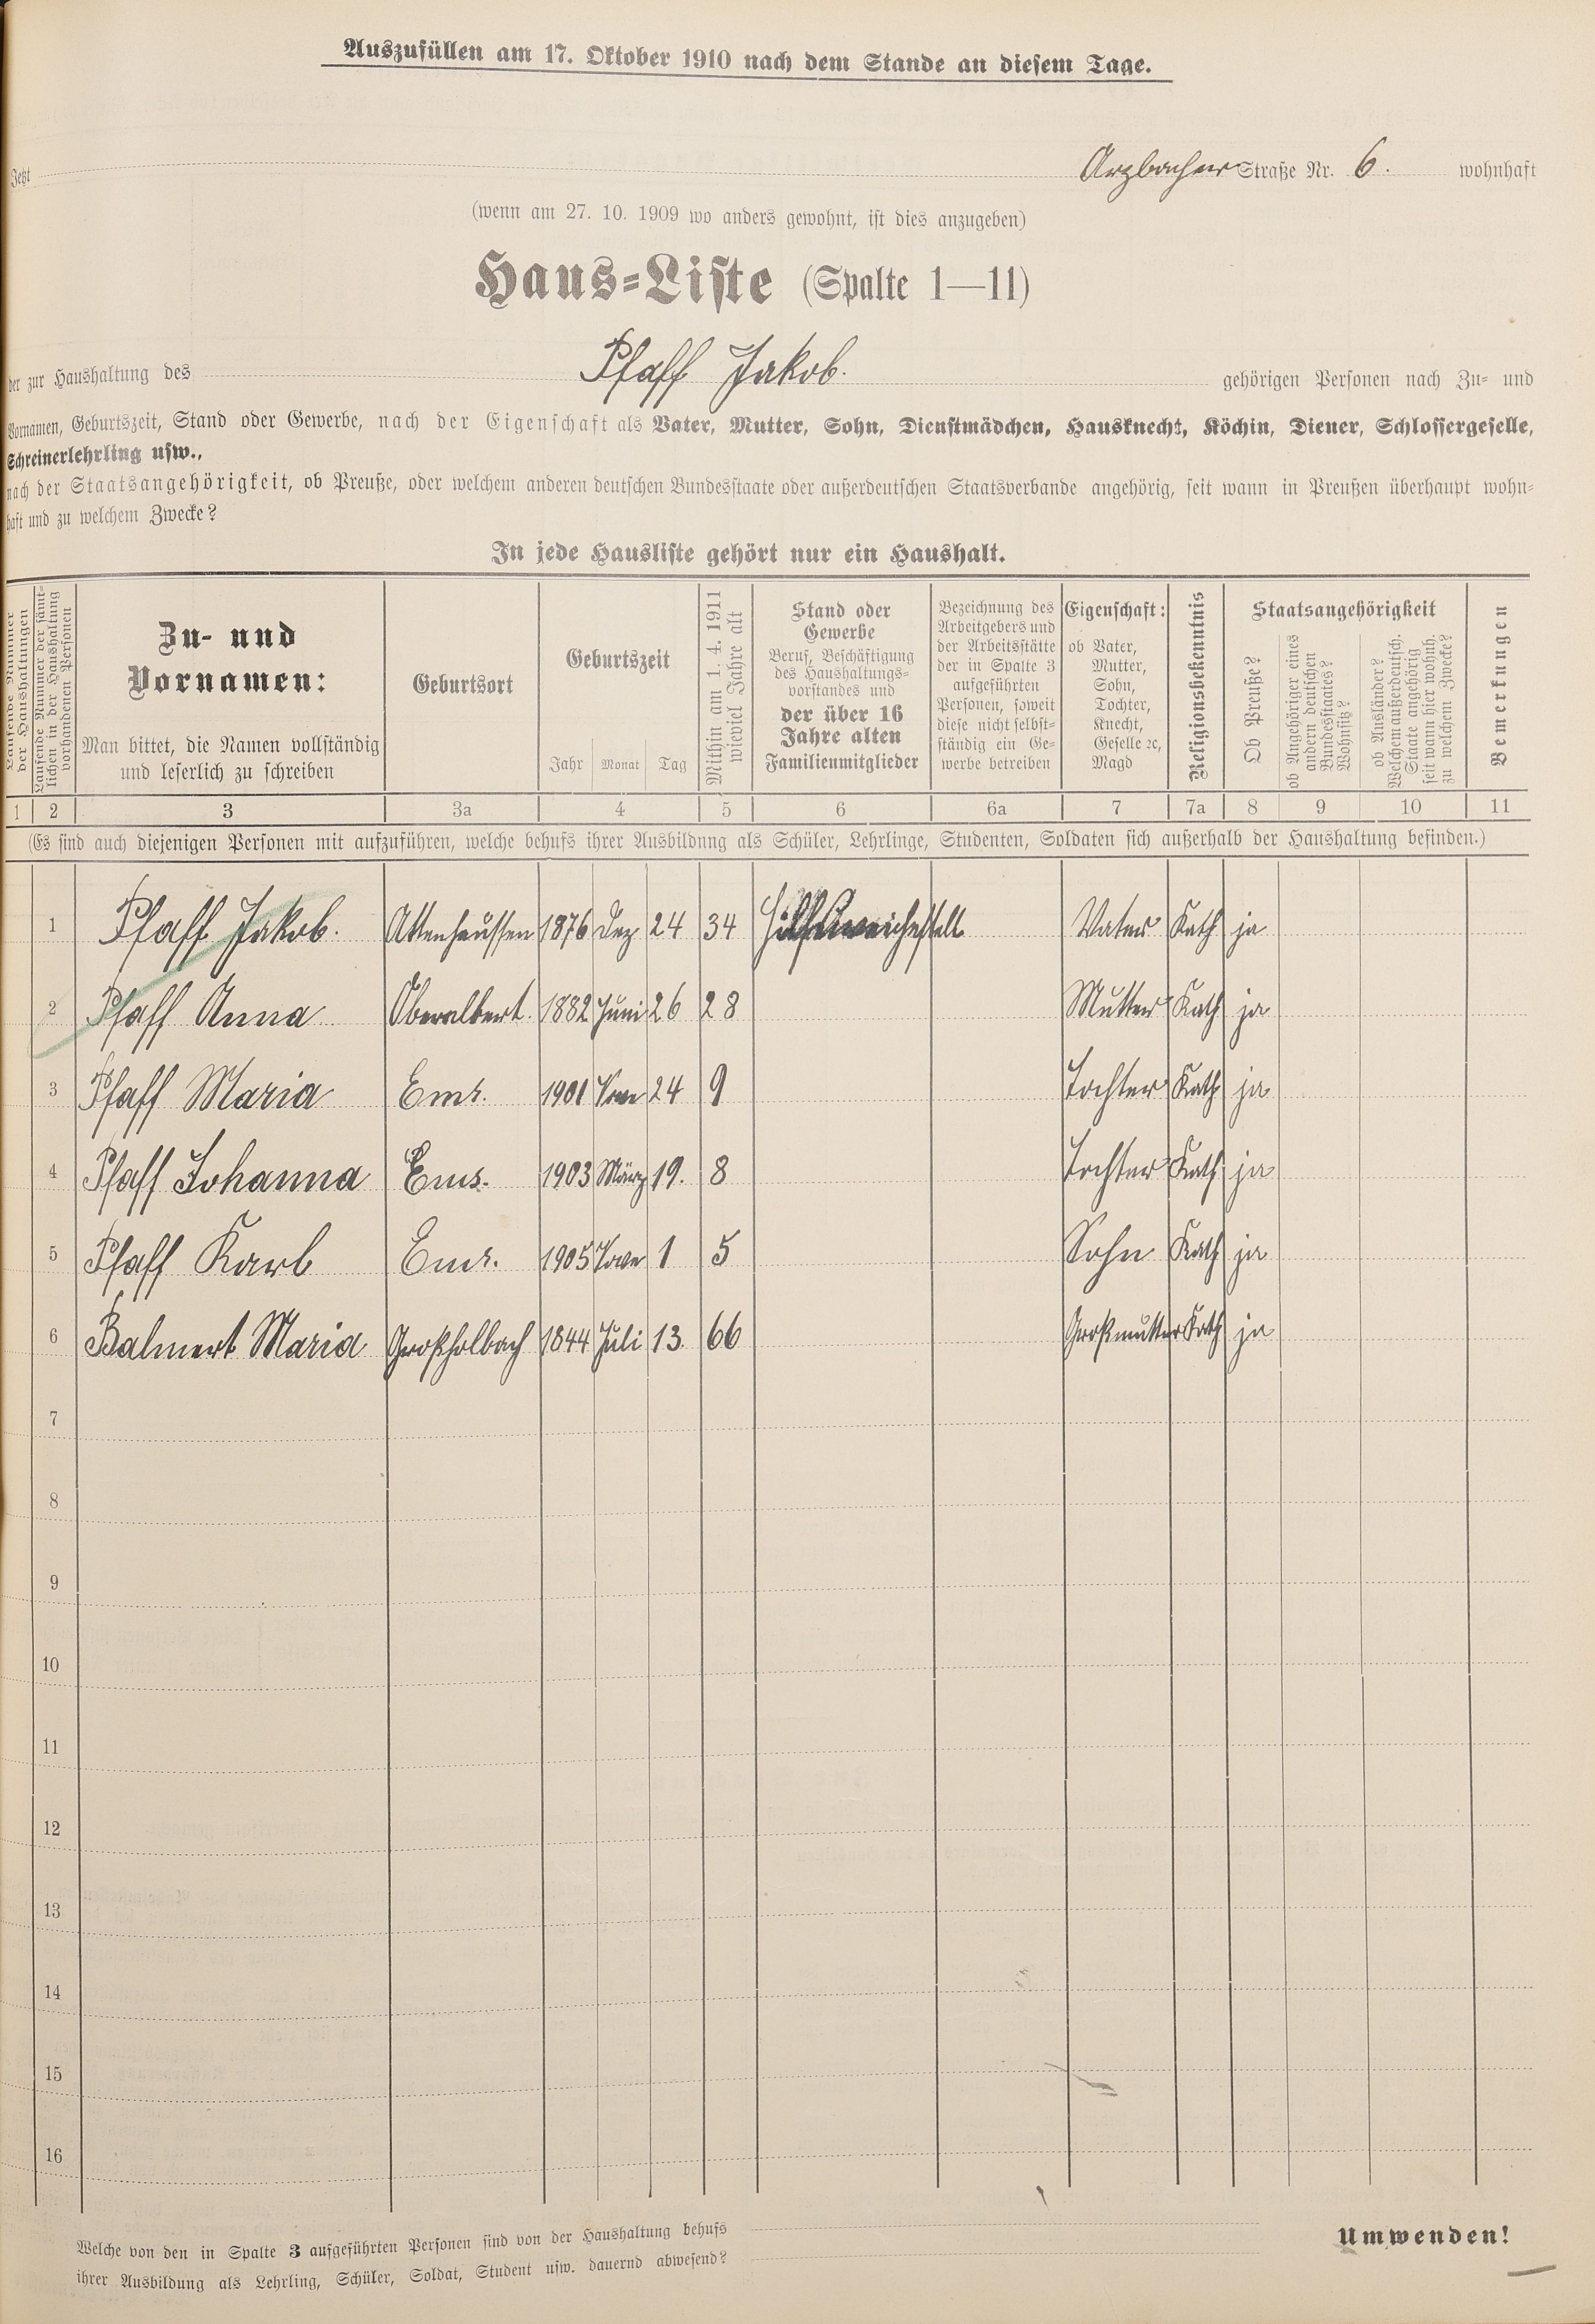 Auszufüllen am 17. Oktober 1910 nach dem Stande an diesem Tage.
Jetzt Arzbacher Straße Nr. 6. wohnhaft
(wenn am 27. 10. 1909 wo anders gewohnt, ist dies anzugeben)
Haus-Liste (Spalte 1—11)
der zur Haushaltung des Pfaff Jakob. gehörigen Personen nach Zu- und
Vornamen, Geburtszeit, Stand oder Gewerbe, nach der Eigenschaft als Vater, Mutter, Sohn, Dienstmädchen, Hausknecht, Köchin, Diener, Schlossergeselle,
Schreinerlehrling usw.,
nach der Staatsangehörigkeit, ob Preuße, oder welchem anderen deutschen Bundesstaate oder außerdeutschen Staatsverbande angehörig, seit wann in Preußen überhaupt wohn-
haft und zu welchem Zwecke?
In jede Hausliste gehört nur ein Haushalt.
Laufende Nummer
der Haushaltungen
Laufende Nummer der sämt-
lichen in der Haushaltung
vorhandenen Personen
Zu- und
Vornamen:
Man bittet, die Namen vollständig
und leserlich zu schreiben
Geburtsort
Geburtszeit
Jahr Monat Tag
Mithin am 1. 4. 1911
wieviel Jahre alt
Stand oder
Gewerbe
Beruf, Beschäftigung
des Haushaltungs-
vorstandes und
der über 16
Jahre alten
Familienmitglieder
Bezeichnung des
Arbeitgebers und
der Arbeitsstätte
der in Spalte 3
aufgeführten
Personen, soweit
diese nicht selbst-
ständig ein Ge-
werbe betreiben
Eigenschaft:
ob Vater,
Mutter,
Sohn,
Tochter,
Knecht,
Geselle ꝛc,
Magd
Religionsbekenntnis
Staatsangehörigkeit
Ob Preuße?
ob Angehöriger eines
andern deutschen
Bundesstaates?
Wohnsitz?
ob Ausländer?
Welchem außerdeutsch.
Staate angehörig
seit wann hier wohnh.
zu welchem Zwecke?
Bemerkungen
1 2 3 3a 4 5 6 6a 7 7a 8 9 10 11
(Es sind auch diejenigen Personen mit aufzuführen, welche behufs ihrer Ausbildung als Schüler, Lehrlinge, Studenten, Soldaten sich außerhalb der Haushaltung befinden.)
1 Pfaff Jakob. Attenhaussen 1876 Dez 24 34 Vater Kath ja
2 Pfaff Anna Oberalbert. 1882 Juni 26 28 Mutter Kath ja
3 Pfaff Maria Ems. 1901 24 9 Tochter Kath ja
4 Pfaff Johanna Ems. 1903 März 19. 8 Tochter Kath ja
5 Pfaff Karl Ems. 1905 Nove 1 5 Sohn Kath ja
6 Balmert Maria Großholbach 1844 Juli 13. 66 Großmutter Kath ja
7
8
9
10
11
12
13
14
15
16
Welche von den in Spalte 3 aufgeführten Personen sind von der Haushaltung behufs
ihrer Ausbildung als Lehrling, Schüler, Soldat, Student usw. dauernd abwesend?
Umwenden!